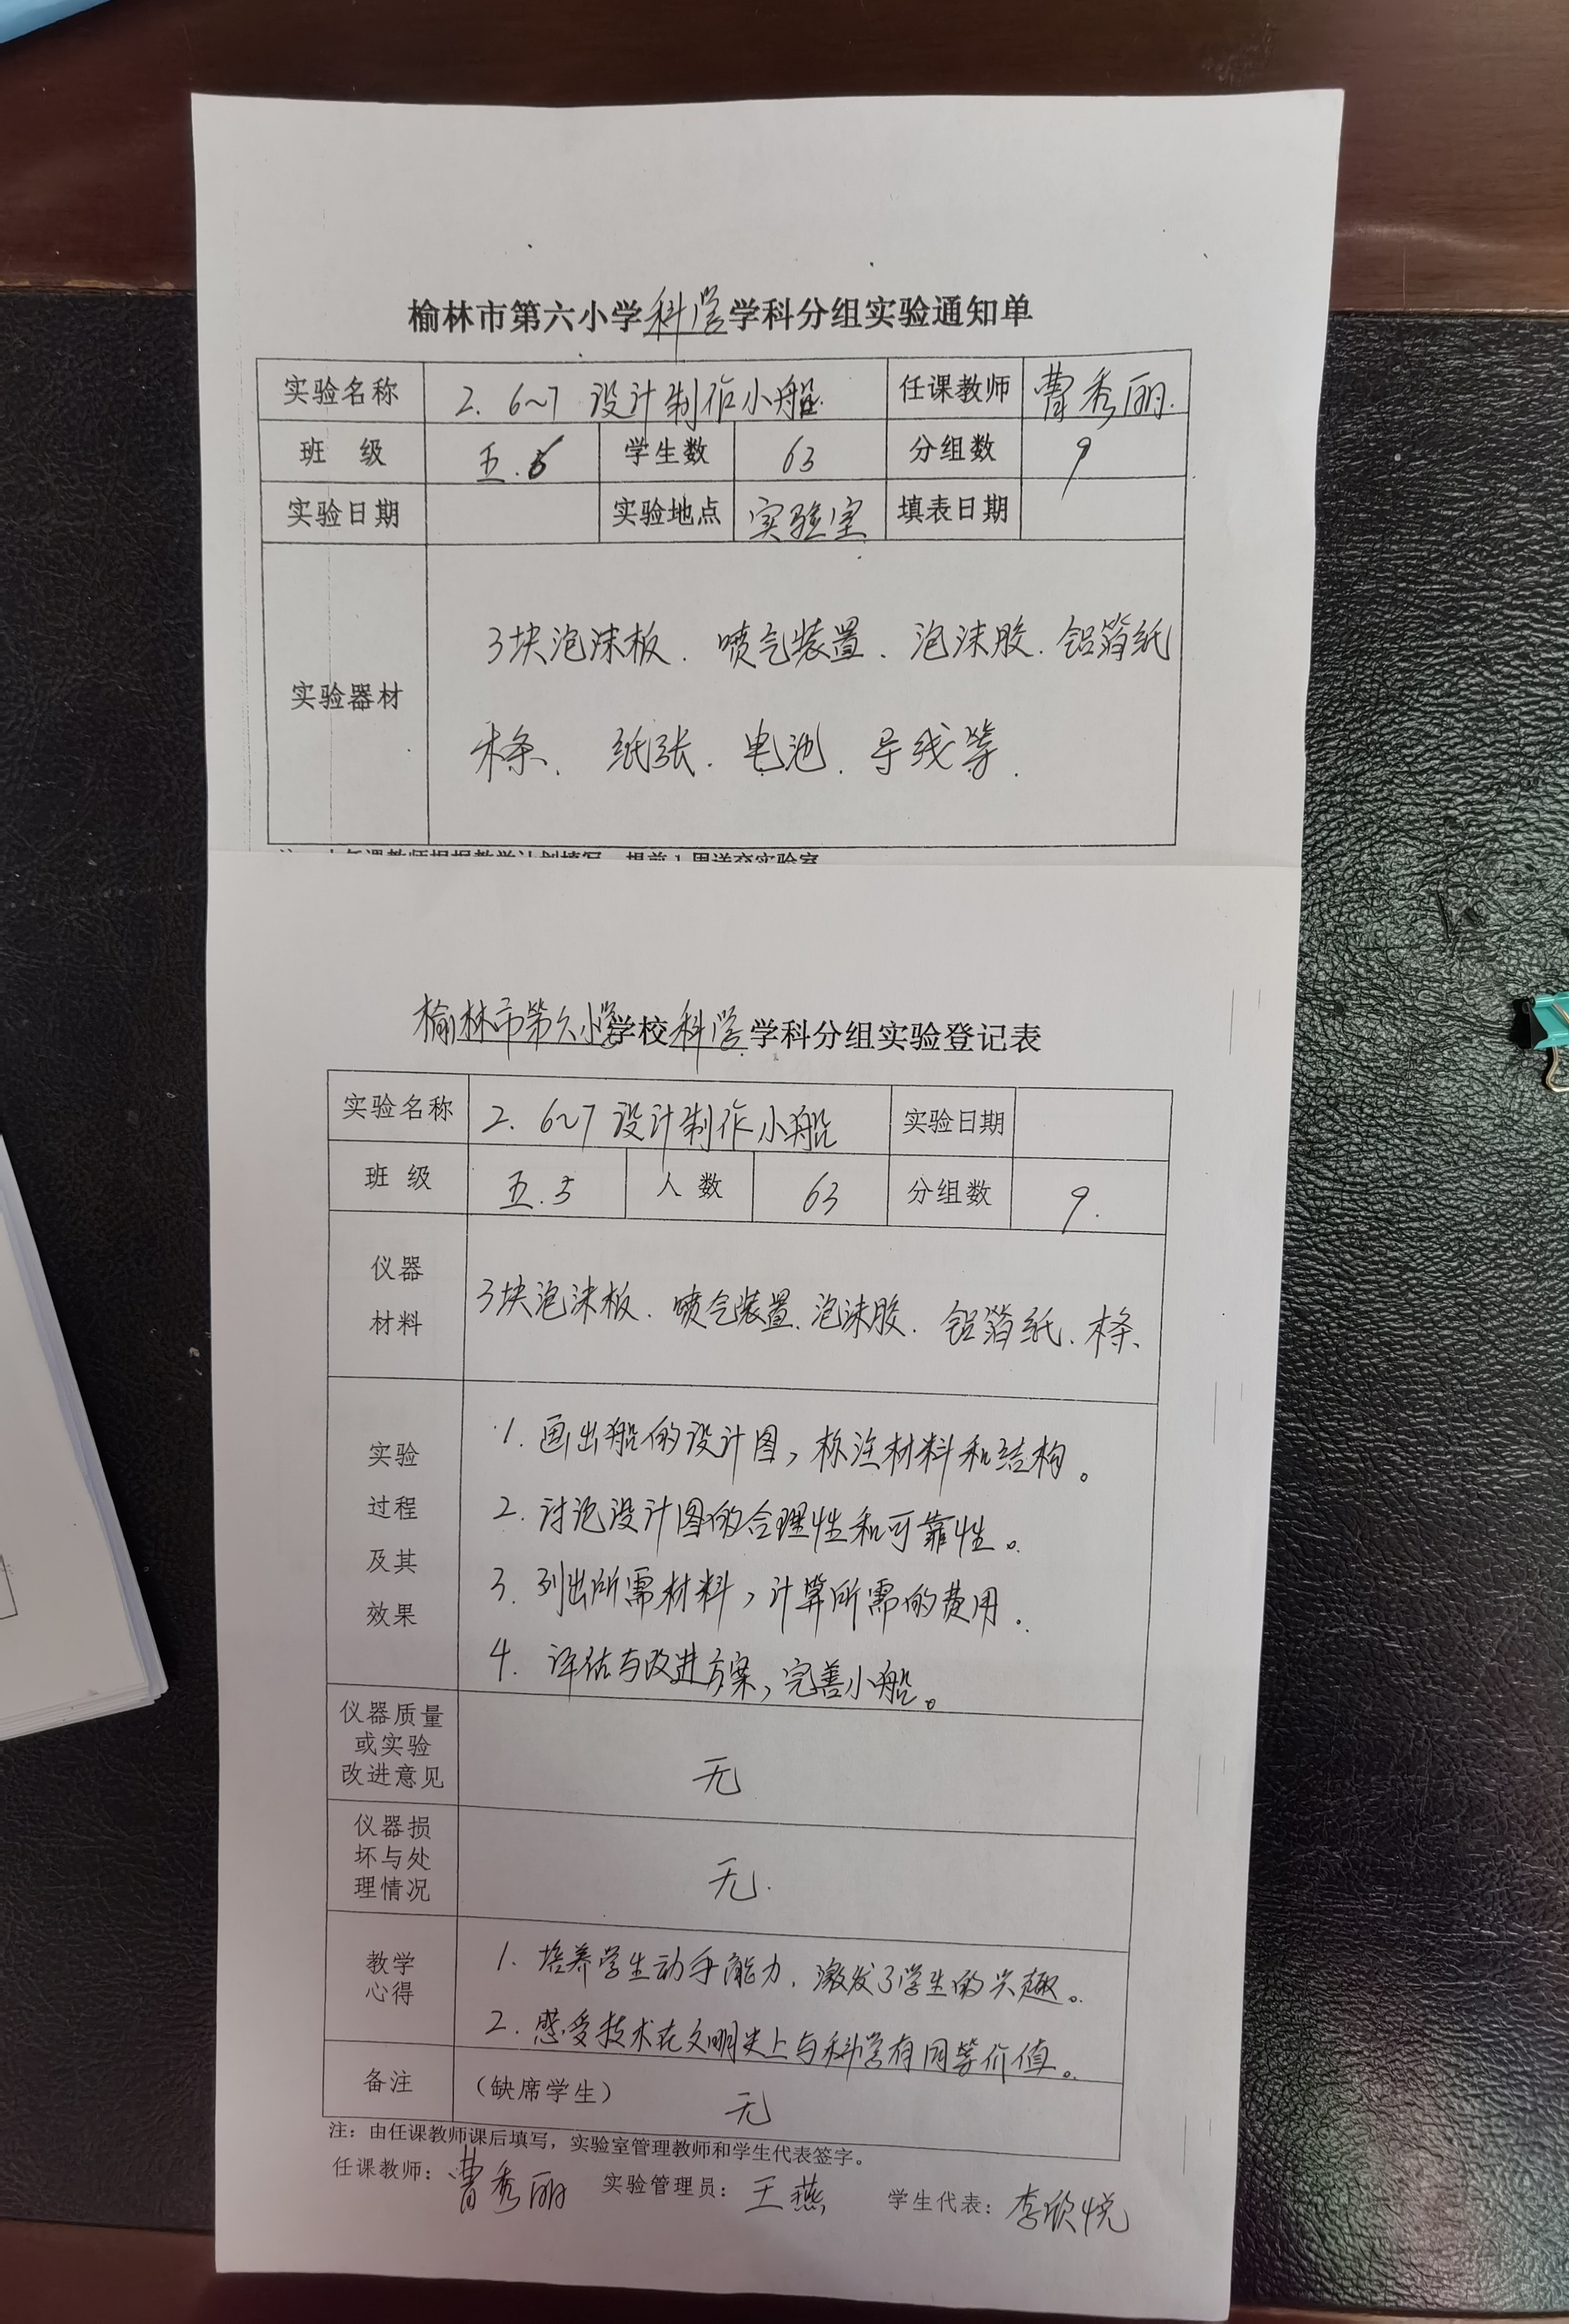 榆林市第六小学科学学科分组实验通知单
实验名称 2. 6~7 设计制作小船. 任课教师 曹秀丽.
班 级 五.5 学生数 63 分组数 9
实验日期 实验地点 实验室 填表日期
实验器材
3块泡沫板. 喷气装置、泡沫胶. 铝箔纸
木条、纸张. 电池. 导线等.
榆林市第六小学学校科学学科分组实验登记表
实验名称 2. 6~7 设计制作小船 实验日期
班 级 五.5 人 数 63 分组数 9.
仪器
材料
3块泡沫板. 喷气装置、泡沫胶. 铝箔纸、木条、
实验
过程
及其
效果
1. 画出船的设计图,标注材料和结构。
2. 讨论设计图的合理性和可靠性。
3. 列出所需材料,计算所需的费用.
4. 评估与改进方案,完善小船。
仪器质量
或实验
改进意见
无
仪器损
坏与处
理情况
无.
教学
心得
1. 培养学生动手能力、激发了学生的兴趣。
2. 感受技术在文明史上与科学有同等价值。
备注 (缺席学生) 无
注:由任课教师课后填写,实验室管理教师和学生代表签字。
任课教师:曹秀丽 实验管理员:王燕 学生代表:李欣悦